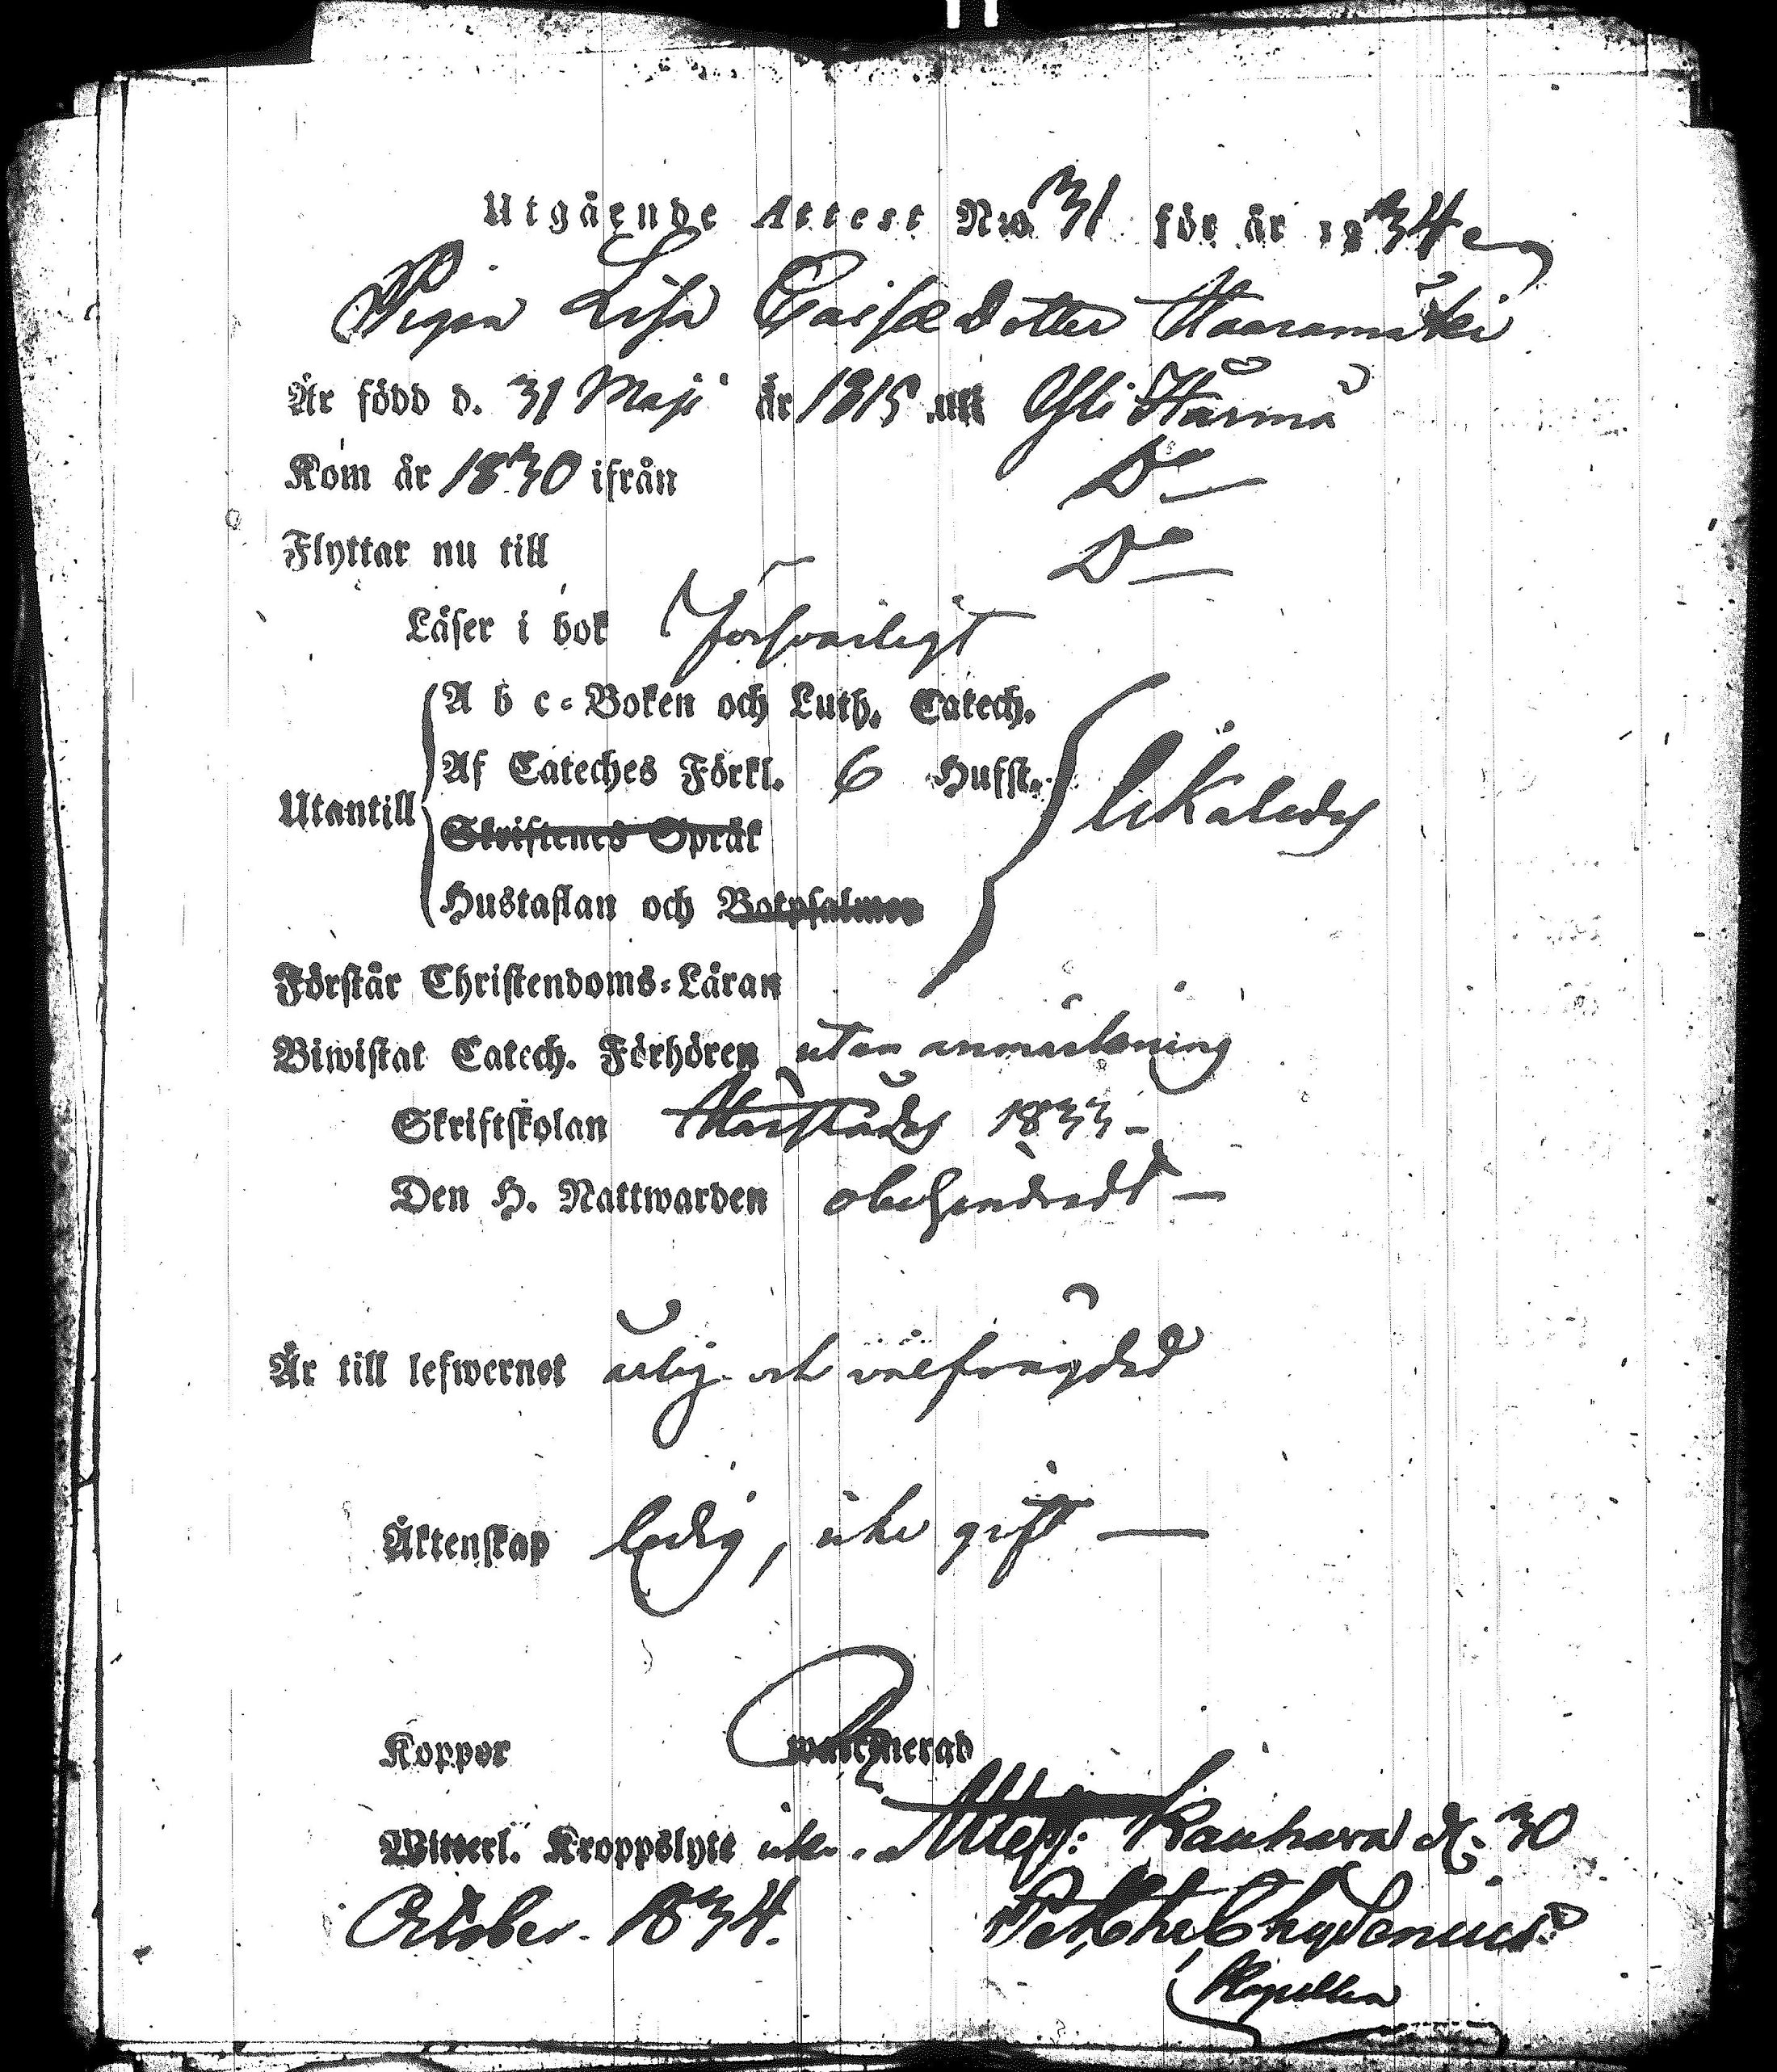 Utgående Attest N:o 31 för år 1834
Pigan Lisa Caisædotter Haaramäki
Är född d. 31 Maji år 1815 uti Yli Härmä
Kom år 1830 ifrån Do
Flyttar nu till Do
Läser i bok Försvarligt
A b c-Boken och Luth. Catech.
Af Cateches Förkl. 6 Hufst.
Utantill likaledes
Skriftenes Språk
Hustaflan och Botpsalmen
Förstår Christendoms-Läran
Biwistat Catech. Förhören utan anmärkning
Skriftskolan 1833 -
Den H. Nattwarden obehindradt —
Är till lefwernet ärlig och välfrägdad
Äktenskap ledig, icke gift —
Koppor waccinerad
Witterl. Kroppslyte icke. Attest: Kauhava d. 30
October. 1834. Chydenius
Capellan